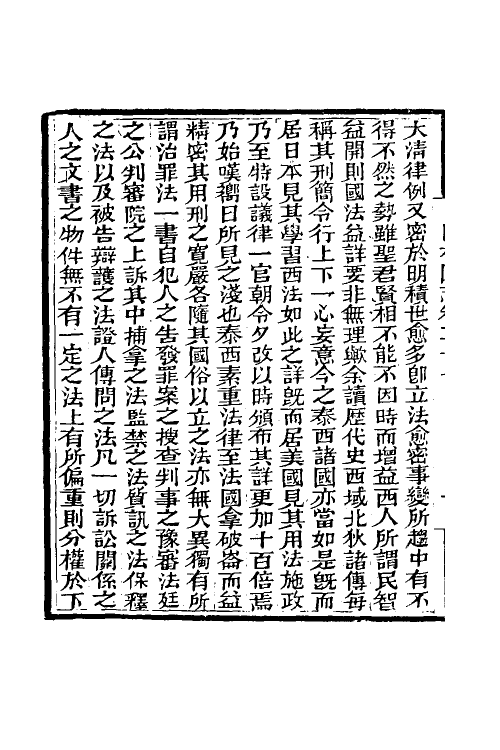 大淸律例又密於明積世愈多卽立法愈密事變所趨中有不
得不然之勢雖聖君賢相不能不因時而增益西人所謂民智
益開則國法益詳要非無理歟余讀歷代史西域北狄諸傳每
稱其刑簡令行上下一心妄意今之泰西諸國亦當如是旣而
居日本見其學習西法如此之詳旣而居美國見其用法施政
乃至特設議律一官朝令夕改以時頒布其詳更加十百倍焉
乃始嘆嚮日所見之淺也泰西素重法律至法國拿破崙而益
精密其用刑之寬嚴各隨其國俗以立之法亦無大異獨有所
謂治罪法一書自犯人之告發罪案之搜查判事之豫審法廷
之公判審院之上訴其中捕拿之法監禁之法質訊之法保釋
之法以及被告辯護之法證人傳問之法凡一切訴訟關係之
人之文書之物件無不有一定之法上有所偏重則分權於下